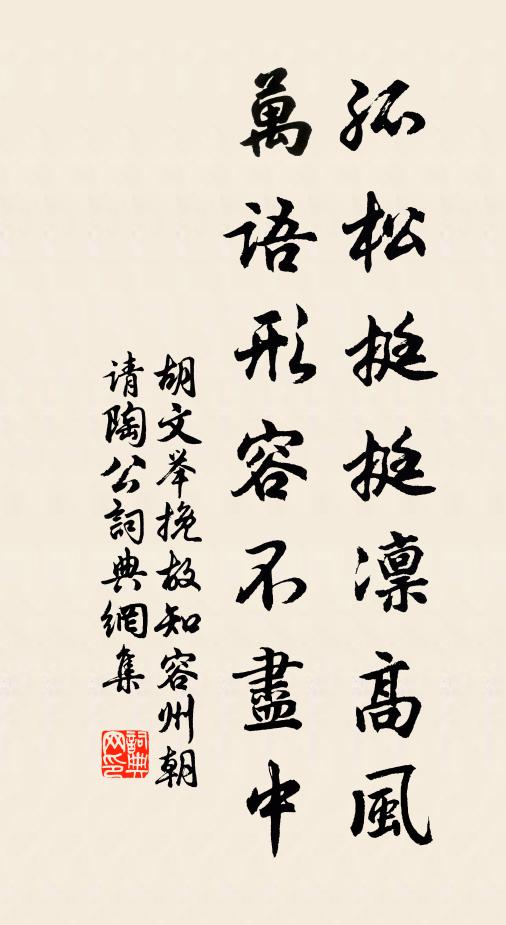 孤松挺挺凛高風
萬語形容不盡中
胡文举挽故知容州朝
请陶公詞典網集
詞典網印